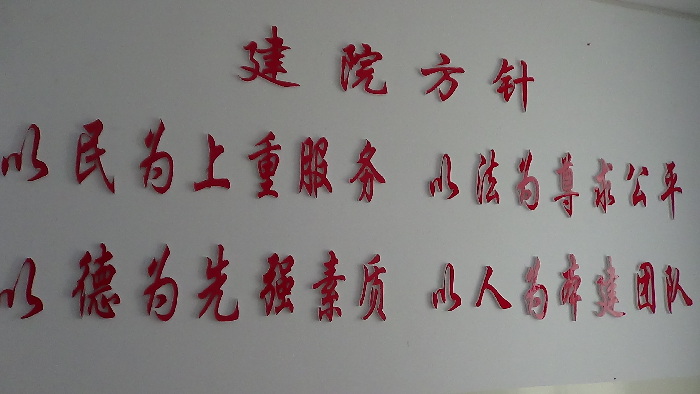 建院方针
以民为上重服务 以法为尊求公平
以德为先强素质 以人为本建团队